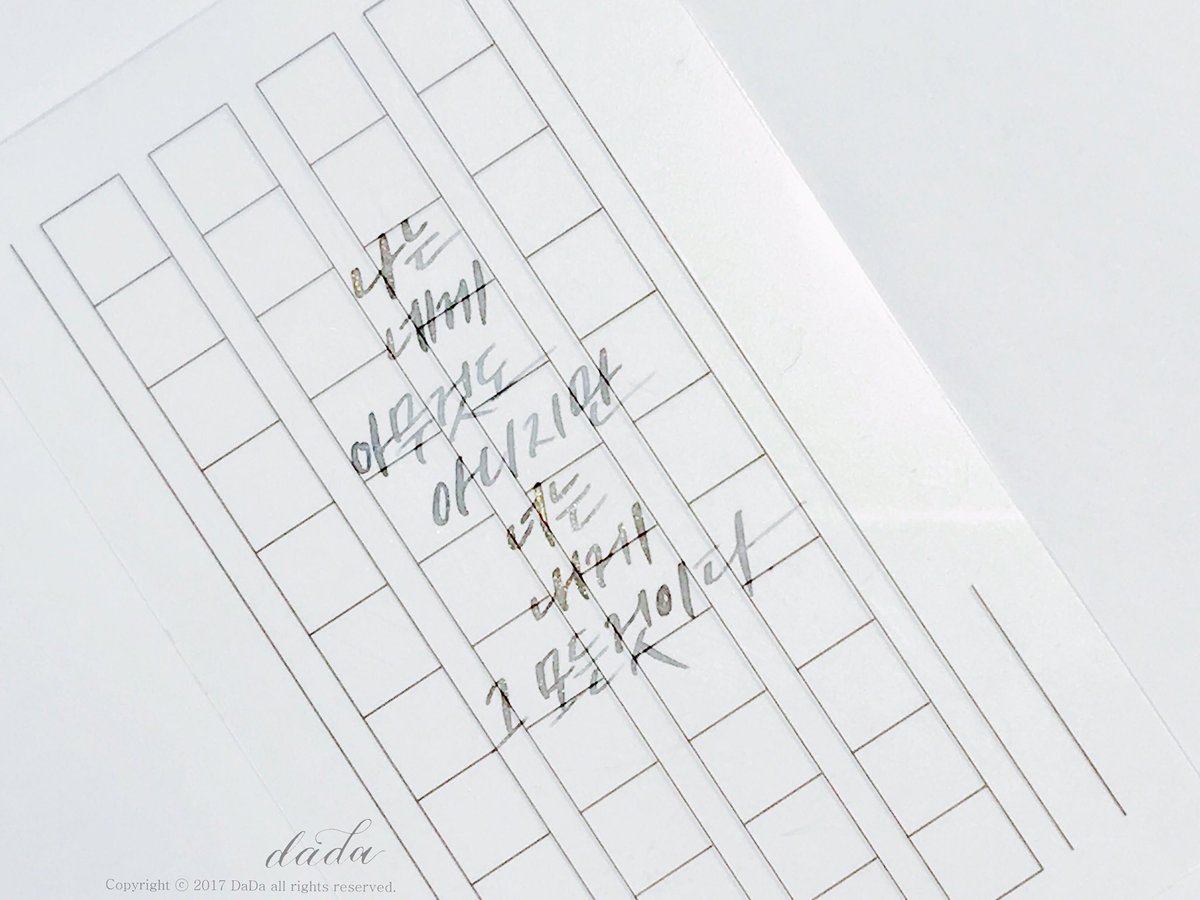 나는
네게
아무것도
아니지만
너는
내게
그 모든 것이다
dada
Copyright ⓒ 2017 DaDa all rights reserved.